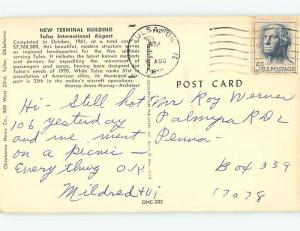 NEW TERMINAL BUILDING
Tulsa International Airport
Completed in October, 1961, at a total cost
$7,768,500, this beautiful, modern structure
or regional headquarters for the
one of the nation's latest
and devices for expediting the movement
passengers and cargo, having been designed
Tulsa's needs of 1970. While Tulsa ranks 51
population of American cities, its Municipal
port is 25th in the nation's aircraft operations.
Murray-Jones-Murray—Architect
Oklahoma News Co., 709 West 23rd, Tulsa, Oklahoma
TULSA, OK
PM
AUG
5¢ U.S. POSTAGE
POST CARD
Hi - Still hot
106 yesterday
and we went
on a picnic -
Everything O.K
Mildred + Vi
Mr Roy Werner
Palmyra R D 2
Penna -
Box 339
17078
ONC-252